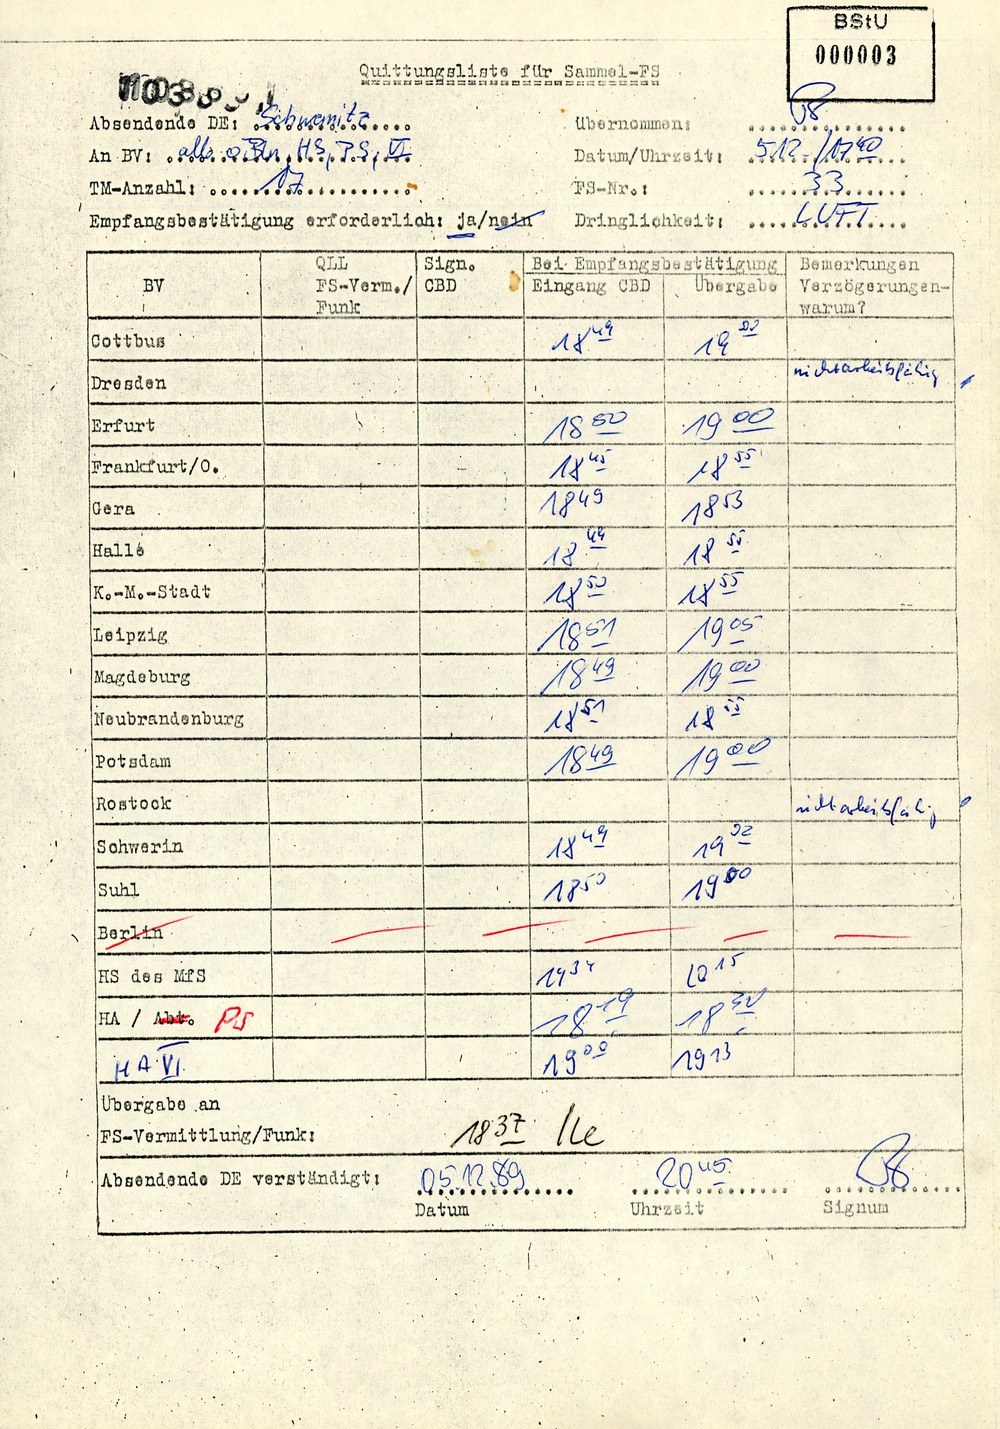 BStU
000003
Quittungsliste für Sammel-FS
Absendende DE: Schwanitz
Übernommen:
An BV: alle o. Bln, HS, PS, VI
Datum/Uhrzeit: 5.12. / 17 40
TM-Anzahl: 17
FS-Nr.: 33
Empfangsbestätigung erforderlich: ja/nein
Dringlichkeit: LUFT
BV
QLL FS-Verm./ Funk
Sign. CBD
Bei Empfangsbestätigung
Eingang CBD
Übergabe
Bemerkungen Verzögerungen- warum?
Cottbus 18 49 19
Dresden nicht arbeitsfähig
Erfurt 18 50 19 00
Frankfurt/O. 18 45 18 55
Gera 18 49 18 53
Halle 18 49 18 55
K.-M.-Stadt 18 50 18 55
Leipzig 18 51 19 05
Magdeburg 18 49 19 00
Neubrandenburg 18 51 18 55
Potsdam 18 49 19 00
Rostock nicht arbeitsfähig
Schwerin 18 49 19 02
Suhl 18 50 19 00
Berlin
HS des MfS 19 34 20 15
HA / Abt. PS 18 19 18
HA VI 19 00 19 13
Übergabe an
FS-Vermittlung/Funk: 18 37
Absendende DE verständigt: 05.12.89 20 45
Datum Uhrzeit Signum